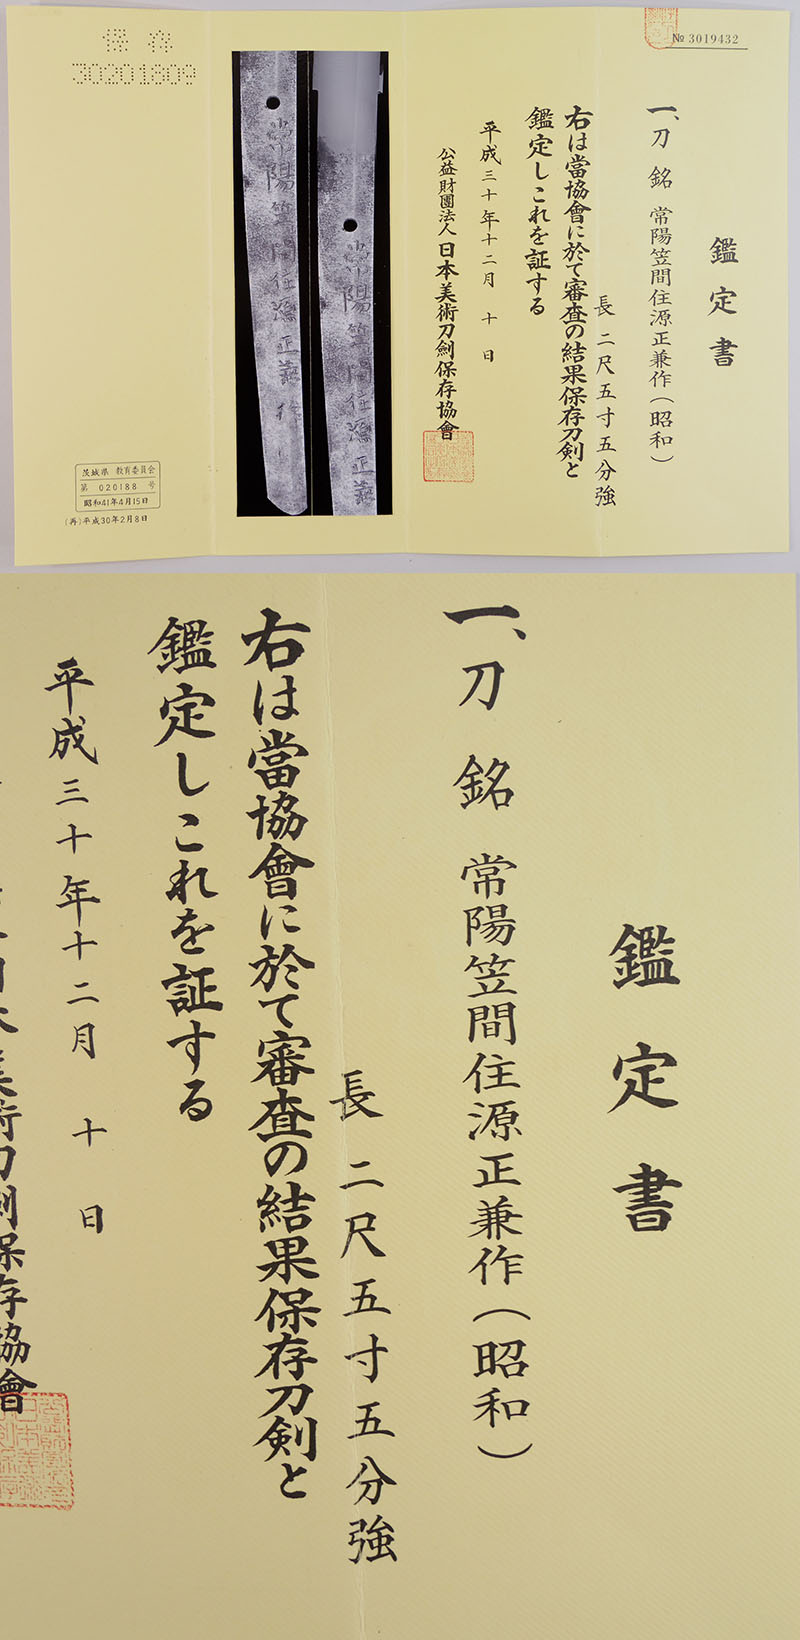 № 3019432
鑑定書
一、刀 銘 常陽笠間住源正兼作(昭和)
長 二尺五寸五分強
右は當協會に於て審査の結果保存刀剣と
鑑定しこれを証する
平成三十年十二月 十 日
公益財團法人 日本美術刀劍保存協會
常陽笠間住源正兼
常陽笠間住源正兼作
保存
30201809
茨城県 教育委員会
第 020188 号
昭和41年4月15日
(再)平成30年2月8日
鑑定書
一、刀 銘 常陽笠間住源正兼作(昭和)
長 二尺五寸五分強
右は當協會に於て審査の結果保存刀剣と
鑑定しこれを証する
平成三十年十二月 十 日
美術刀劍保存協會